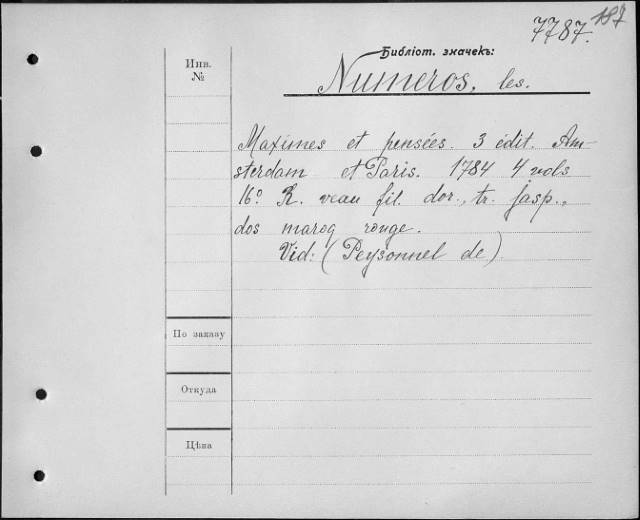 187
7787.
Библіот. значекъ:
Инв.
№
Numeros, les.
Maximes et pensées. 3 édit. Am-
sterdam et Paris. 1784 4 vols
16º R. veau fil. dor., tr. jasp.,
dos maroq rouge.
Vid: (Peysonnel de)
По заказу
Откуда
Цѣна